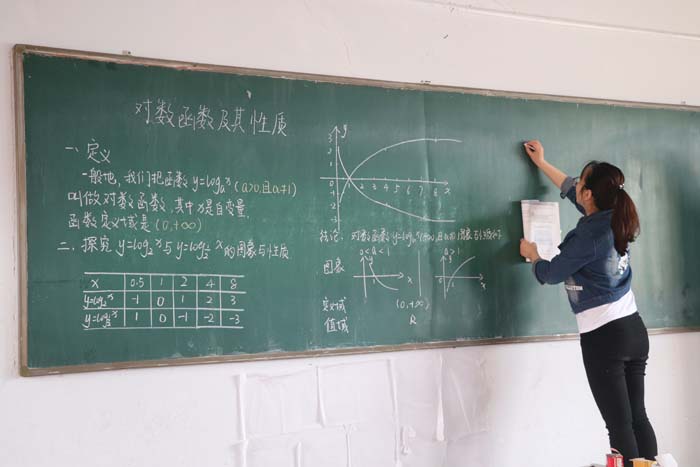 对数函数及其性质
一、定义
一般地，我们把函数 y=logₐx (a>0,且a≠1)
叫做对数函数，其中x是自变量，
函数定义域是 (0,+∞)
二、探究 y=log₂x 与 y=log½x 的图象与性质
x 0.5 1 2 4 8
y=log₂x -1 0 1 2 3
y=log½x 1 0 -1 -2 -3
y
3
2
1
0 1 2 3 4 5 6 7 8 x
-1
-2
-3
结论: 对数函数 y=logₐx (a>0,且a≠1) 图象与性质
0<a<1 a>1
图象
定义域 (0,+∞)
值域 R